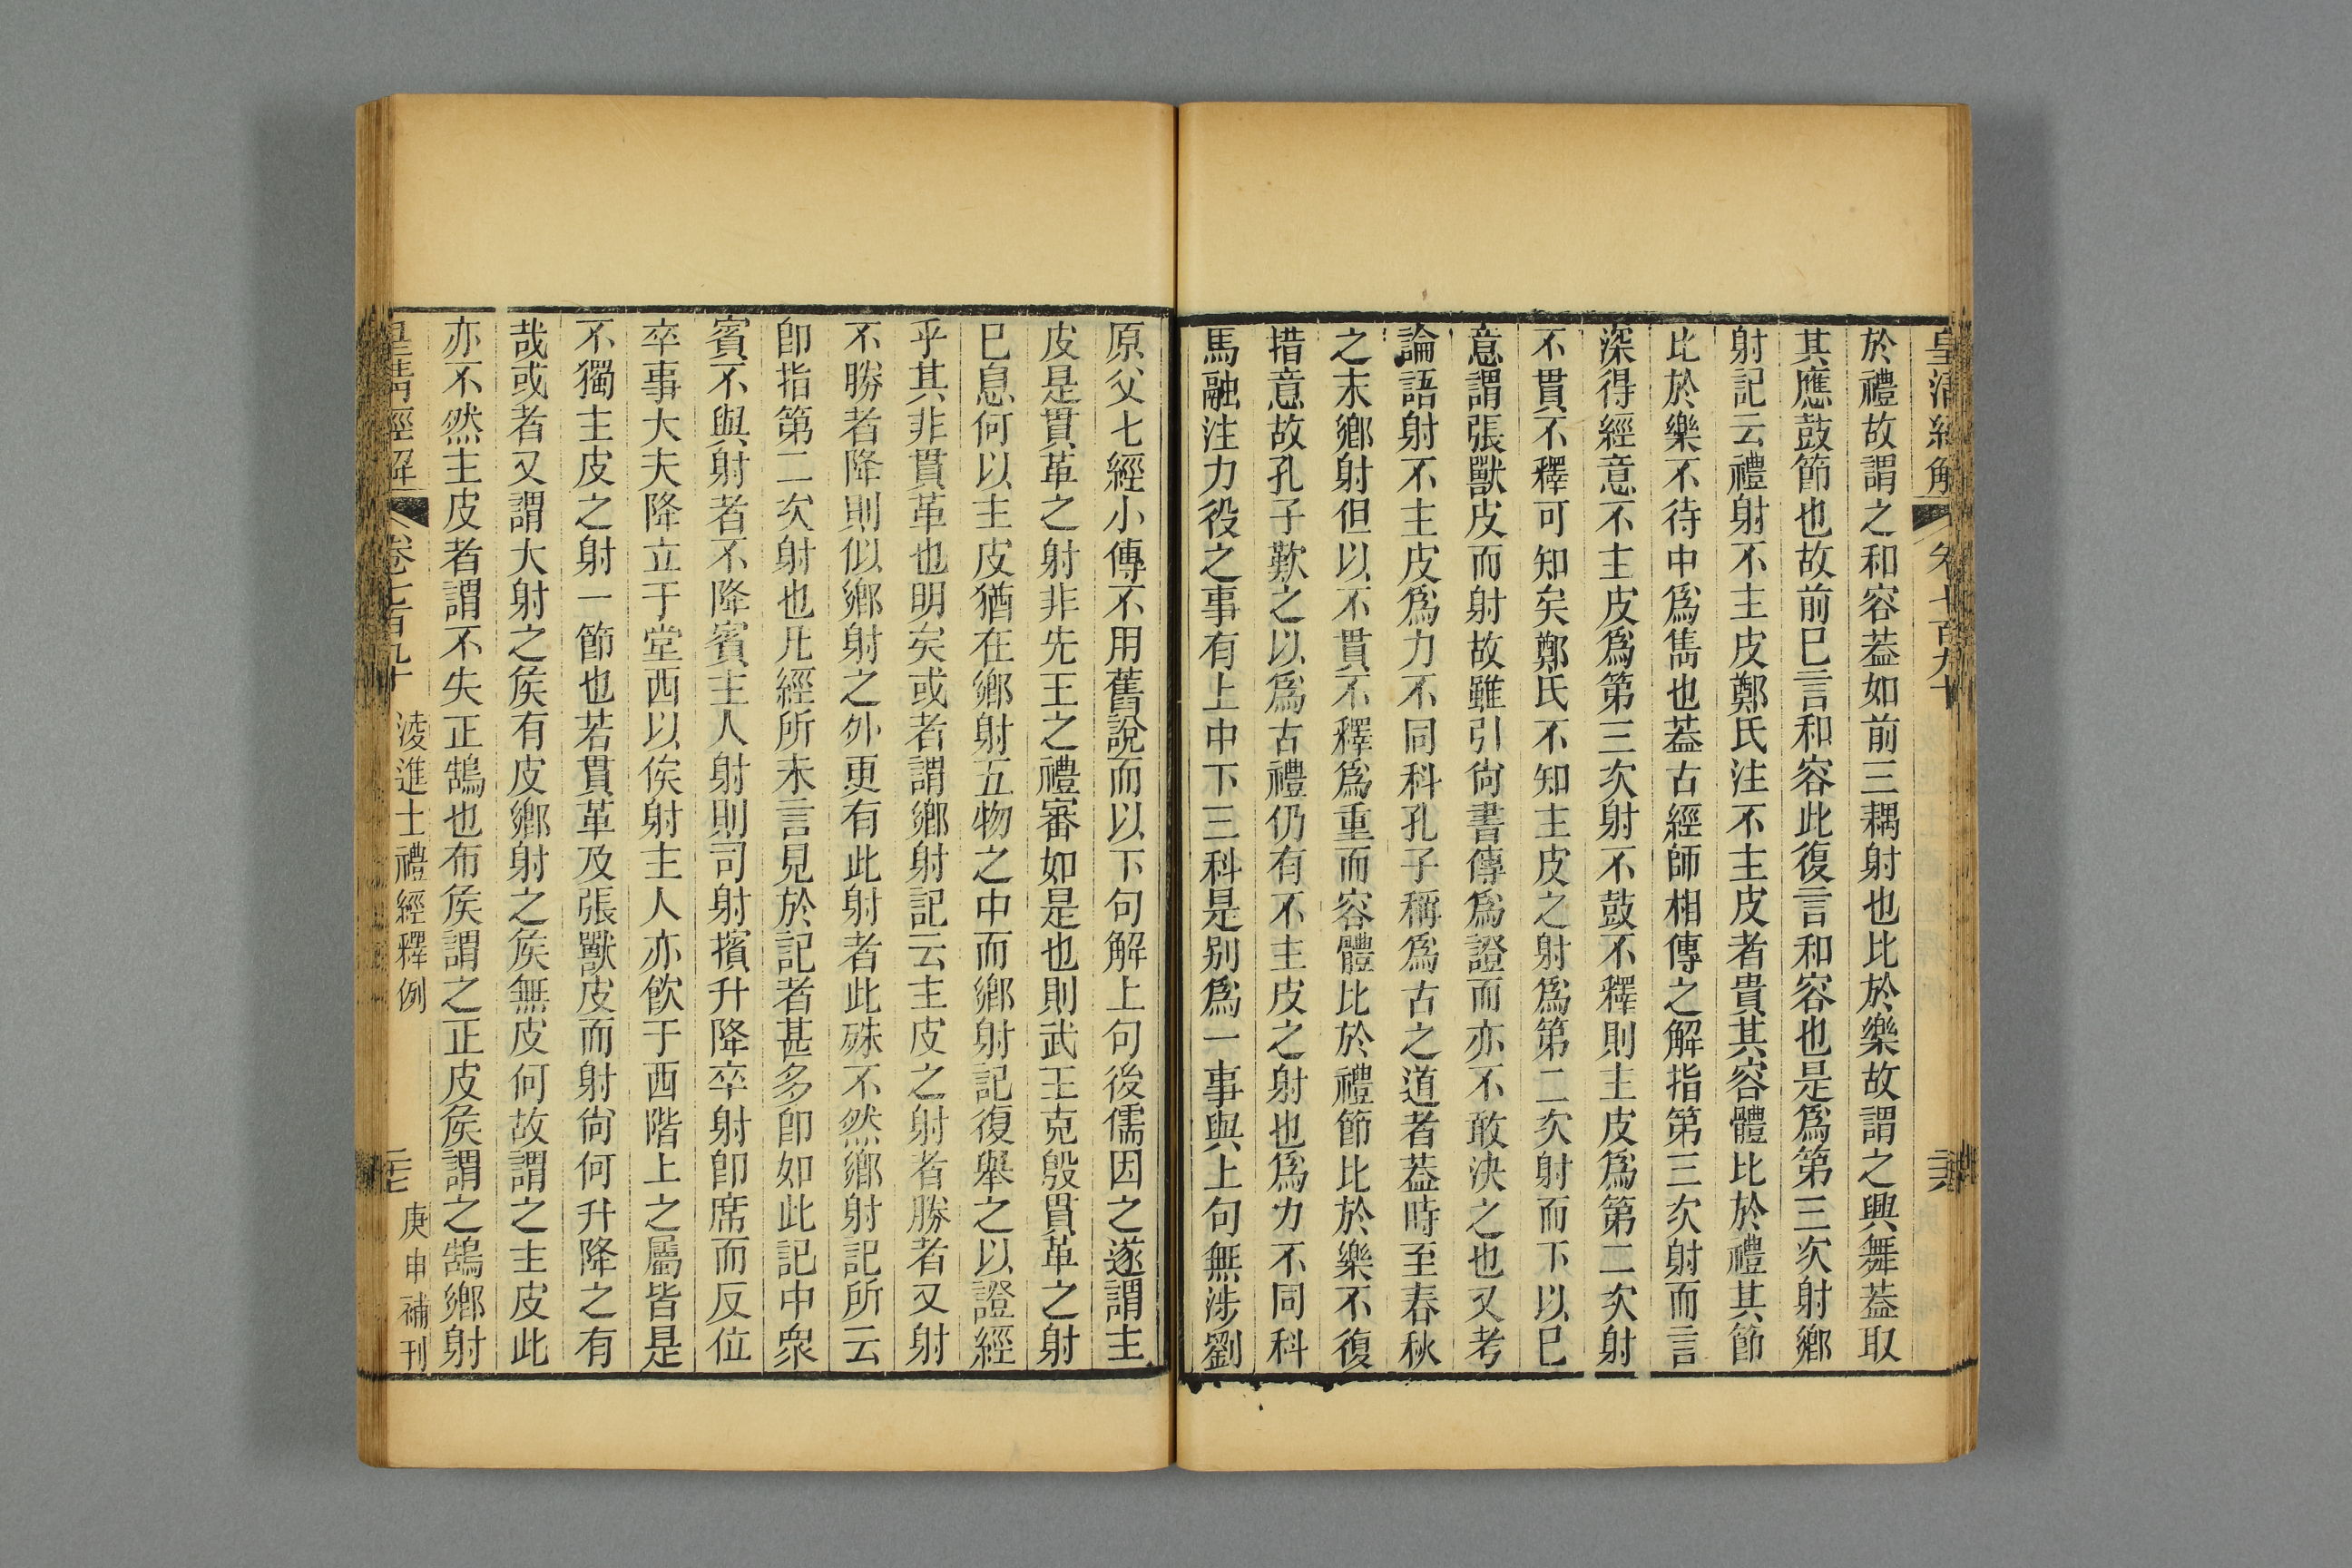 皇清經解 卷七百九十 二六
於禮故謂之和容葢如前三耦射也比於樂故謂之興舞葢取
其應鼓節也故前巳言和容此復言和容也是爲第三次射鄉
射記云禮射不主皮鄭氏注不主皮者貴其容體比於禮其節
比於樂不待中爲雋也葢古經師相傳之解指第三次射而言
深得經意不主皮爲第三次射不鼓不釋則主皮爲第二次射
不貫不釋可知矣鄭氏不知主皮之射爲第二次射而下以巳
意謂張獸皮而射故雖引尙書傳爲證而亦不敢決之也又考
論語射不主皮爲力不同科孔子稱爲古之道者葢時至春秋
之末鄉射但以不貫不釋爲重而容體比於禮節比於樂不復
措意故孔子歎之以爲古禮仍有不主皮之射也爲力不同科
馬融注力役之事有上中下三科是别爲一事與上句無涉劉
原父七經小傳不用舊說而以下句解上句後儒因之遂謂主
皮是貫革之射非先王之禮審如是也則武王克殷貫革之射
巳息何以主皮猶在鄉射五物之中而鄉射記復舉之以證經
乎其非貫革也明矣或者謂鄉射記云主皮之射者勝者又射
不勝者降則似鄉射之外更有此射者此殊不然鄉射記所云
卽指第二次射也凡經所未言見於記者甚多卽如此記中衆
賓不與射者不降賓主人射則司射擯升降卒射卽席而反位
卒事大夫降立于堂西以俟射主人亦飮于西階上之屬皆是
不獨主皮之射一節也若貫革及張獸皮而射尙何升降之有
哉或者又謂大射之侯有皮鄉射之侯無皮何故謂之主皮此
亦不然主皮者謂不失正鵠也布侯謂之正皮侯謂之鵠鄉射
皇清經解 卷七百九十 淩進士禮經釋例 二七 庚申補刊